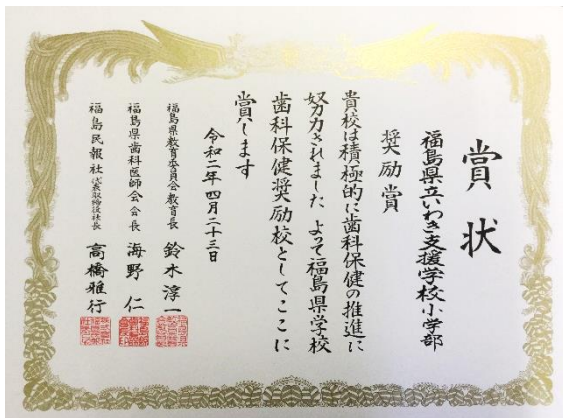 賞状
福島県立いわき支援学校小学部
奨励賞
貴校は積極的に歯科保健の推進に
努力されました よって福島県学校
歯科保健奨励校としてここに
賞します
令和二年四月二十三日
福島県教育委員会教育長 鈴木淳一
福島県歯科医師会会長 海野仁
福島民報社代表取締役社長 高橋雅行